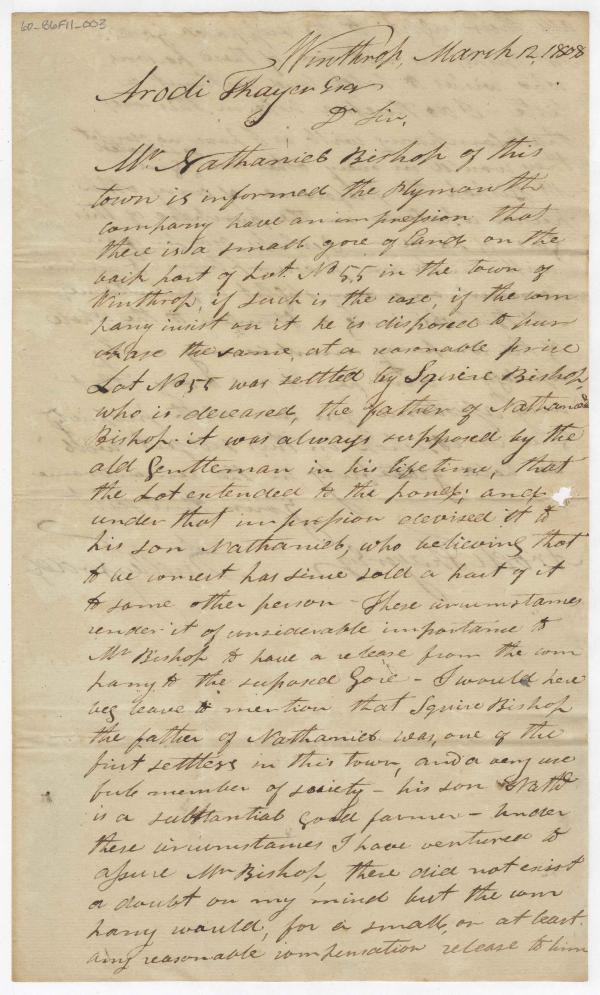 60-86F11-003
Winthrop, March 12, 1808
Arodi Thayer Esqr
Dr Sir,
Mr Nathaniel Bishop of this
town is informed the Plymouth
company have an impression that
there is a small gore of land on the
back part of Lot No 55 in the town of
Winthrop, if such is the case, if the com
pany insist on it he is disposed to pur
chase the same, at a reasonable price
Lot No 55 was settled by Squire Bishop,
who is deceased, the father of Nathaniel
Bishop. it was always supposed by the
old Gentleman in his lifetime, that
the Lot extended to the pond; and
under that impression devised it to
his son Nathaniel, who believing that
to be correct has since sold a part of it
to some other person - These circumstances
render it of considerable importance to
Mr Bishop to have a release from the com
pany to the suposed Gore - I would here
beg leave to mention that Squire Bishop
the father of Nathaniel was, one of the
first settlers in this town, and a very use
full member of society - his son Nathl
is a substantial good farmer - Under
these circumstances I have ventured to
assure Mr Bishop, there did not exist
a doubt on my mind but the com
pany would, for a small, or at least
any reasonable compensation release to him